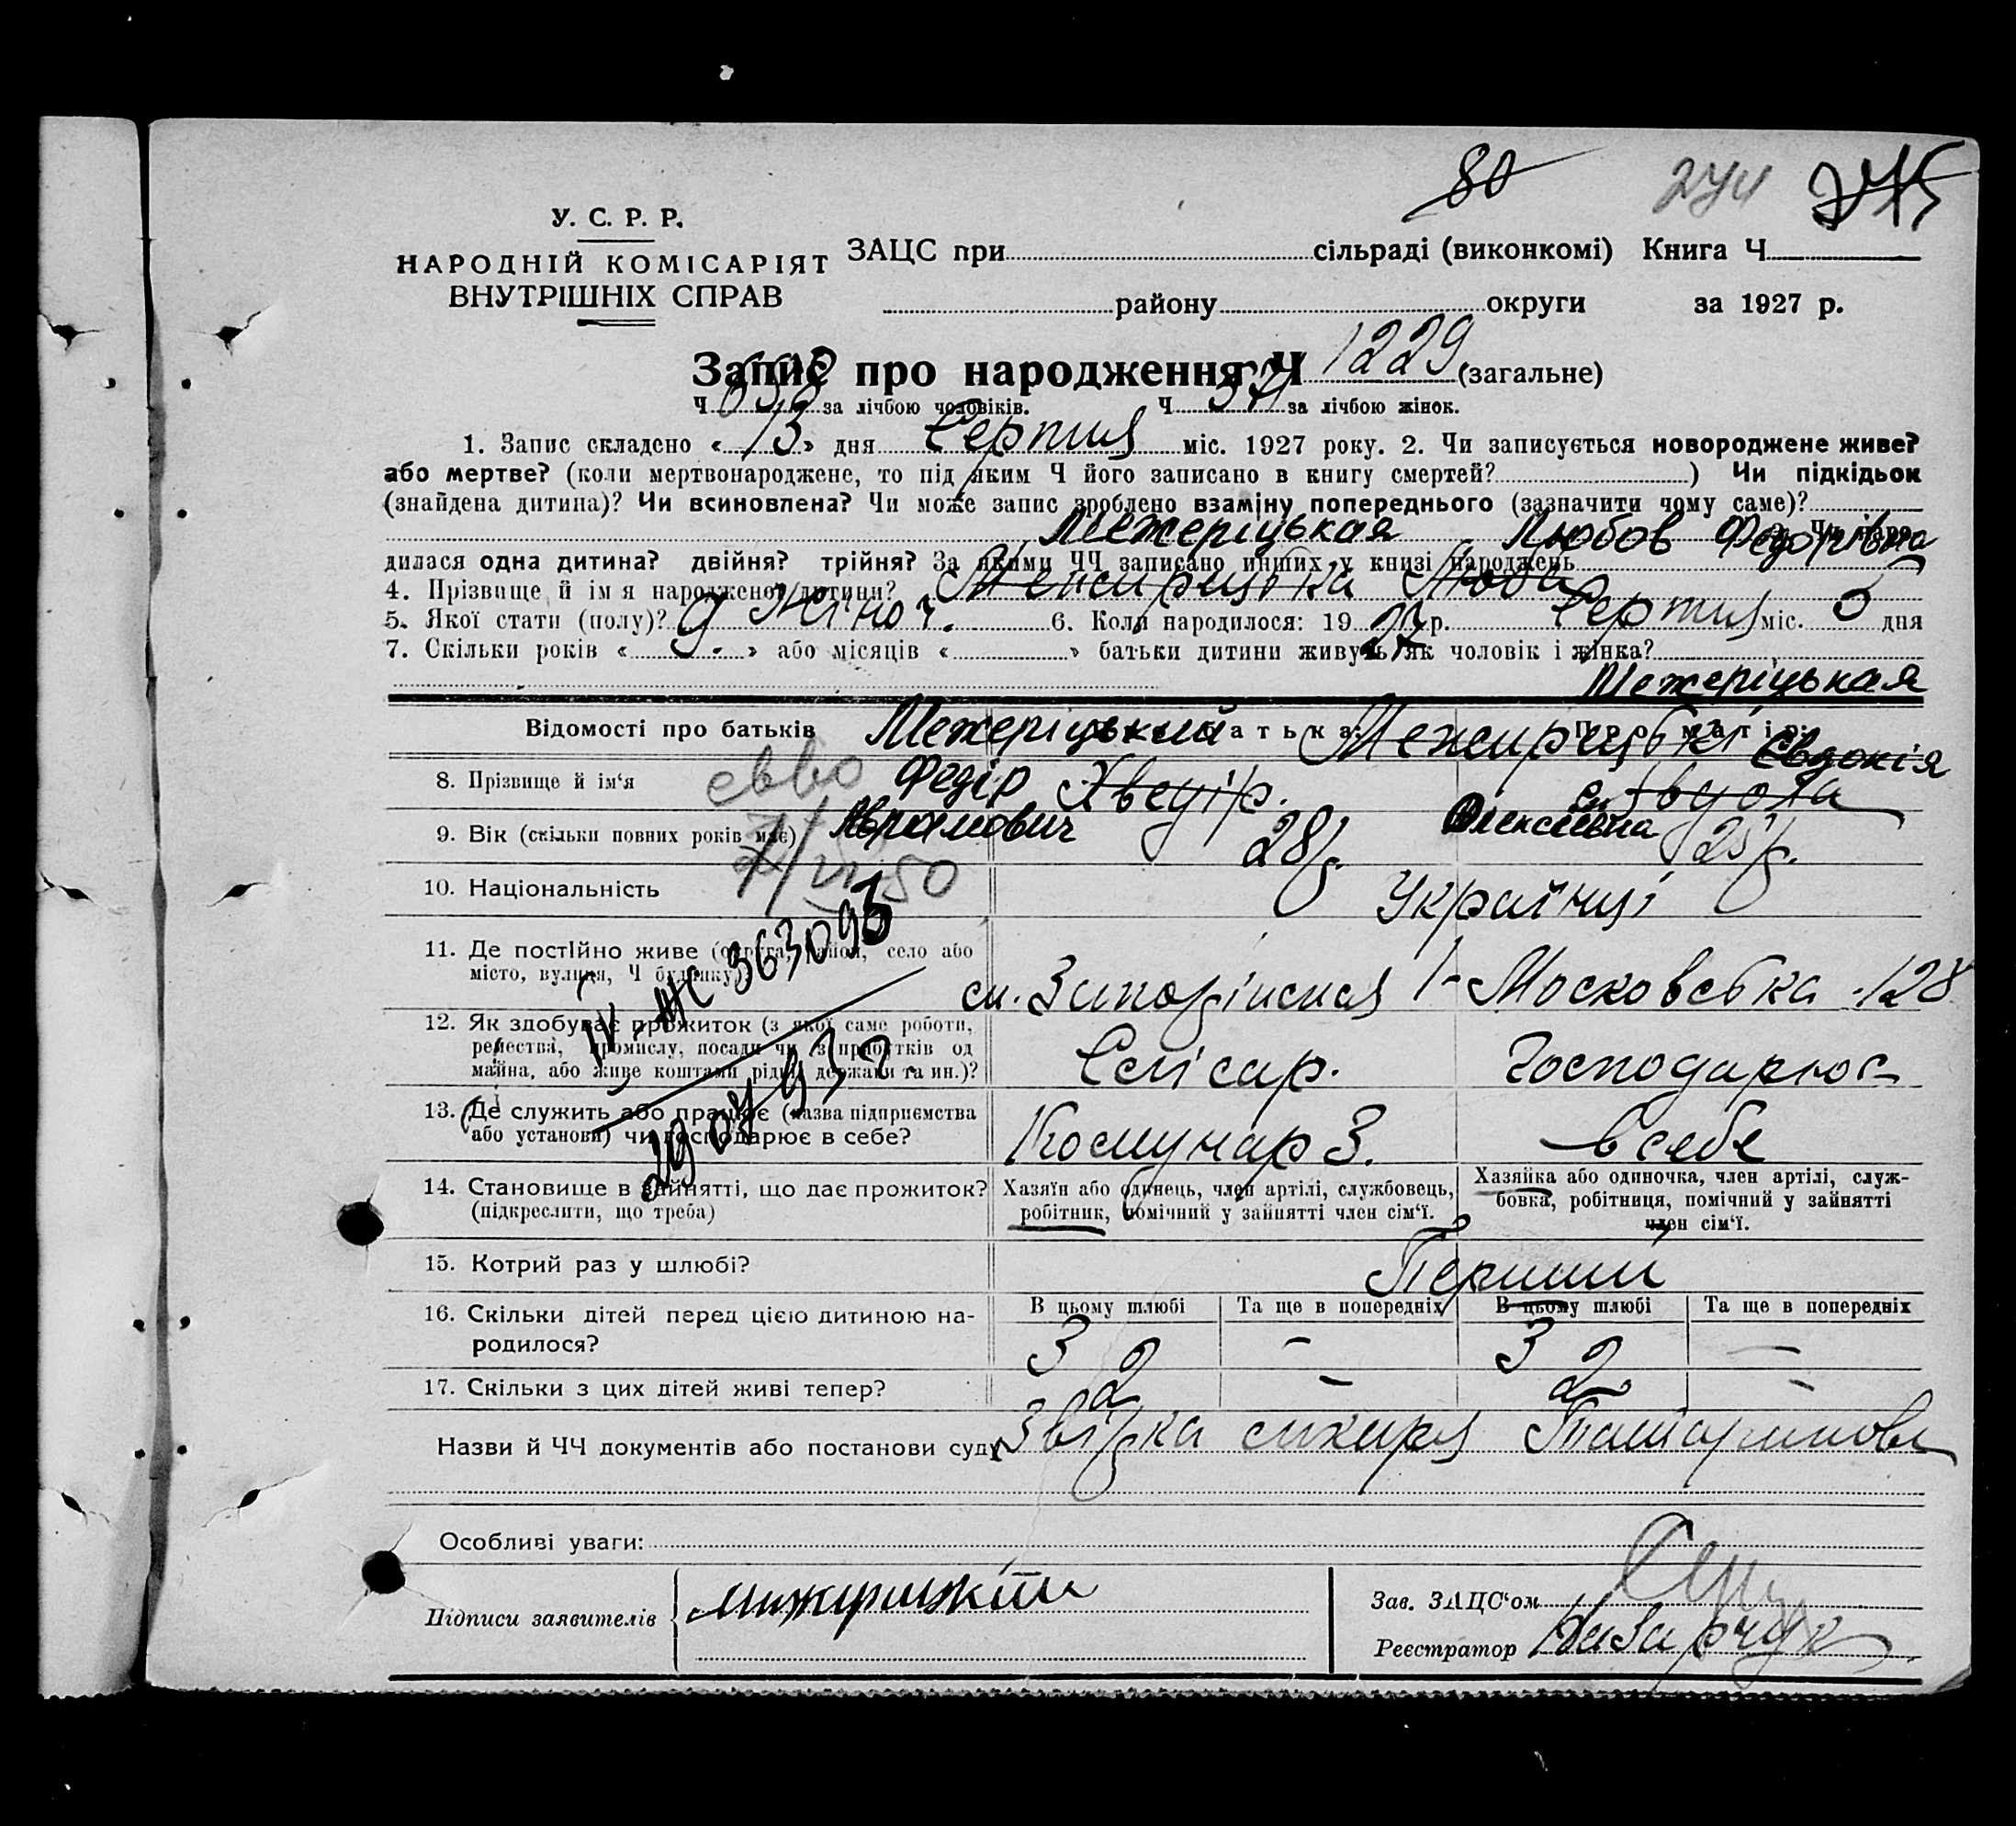 80 274 275
У. С. Р. Р.
НАРОДНІЙ КОМІСАРІЯТ
ВНУТРІШНІХ СПРАВ
ЗАЦС при сільраді (виконкомі) Книга Ч
району округи за 1927 р.
Запис про народження Ч 1229 (загальне)
Ч 658 за лічбою чоловіків. Ч 571 за лічбою жінок.
1. Запис складено « 13 » дня Серпня міс. 1927 року. 2. Чи записується новороджене живе?
або мертве? (коли мертвонароджене, то під яким Ч його записано в книгу смертей? ) Чи підкідьок
(знайдена дитина)? Чи всиновлена? Чи може запис зроблено взаміну попереднього (зазначити чому саме)?
Межеріцькая Любов Федорівна
дилася одна дитина? двійня? трійня? За якими ЧЧ записано инших у книзі народжень
4. Прізвище й ім'я народженої дитини? Межирицька Люба
5. Якої стати (полу)? Жіноч. 6. Коли народилося: 19 27 р. Серпня міс. 5 дня
7. Скільки років « 9. » або місяців « » батьки дитини живуть як чоловік і жінка?
Межеріцькая
Відомості про батьків Межеріцький батька: Межирицькі Про матір: Євдокія
8. Прізвище й ім'я Федір Хведір. Явдоха
9. Вік (скільки повних років має) Аврамович 28 р. Олексеевна 25 р.
10. Національність Українці
11. Де постійно живе (округа, район, село або
місто, вулиця, Ч будинку) м. Запоріжжя Московська 128
IV-ЖС 363093
12. Як здобуває прожиток (з якої саме роботи,
ремества, промислу, посади чи з прибутків од
майна, або живе коштами рідні, держави та ин.)? Слісар. Господарює
29 07 93 г.
13. Де служить або працює (назва підприємства
або установи) чи господарює в себе? Комунар З. в себе
14. Становище в зайнятті, що дає прожиток?
(підкреслити, що треба)
Хазяїн або одинець, член артілі, службовець,
робітник, помічний у зайнятті член сім'ї.
Хазяйка або одиночка, член артілі, служ-
бовка, робітниця, помічний у зайнятті
член сім'ї.
15. Котрий раз у шлюбі? Перший
16. Скільки дітей перед цією дитиною на-
родилося?
В цьому шлюбі Та ще в попередніх В цьому шлюбі Та ще в попередніх
3 - 3 -
17. Скільки з цих дітей живі тепер? 2 - 2 -
Назви й ЧЧ документів або постанови суду Звідка
Особливі уваги:
Підписи заявителів
Зав. ЗАЦС'ом
Реєстратор